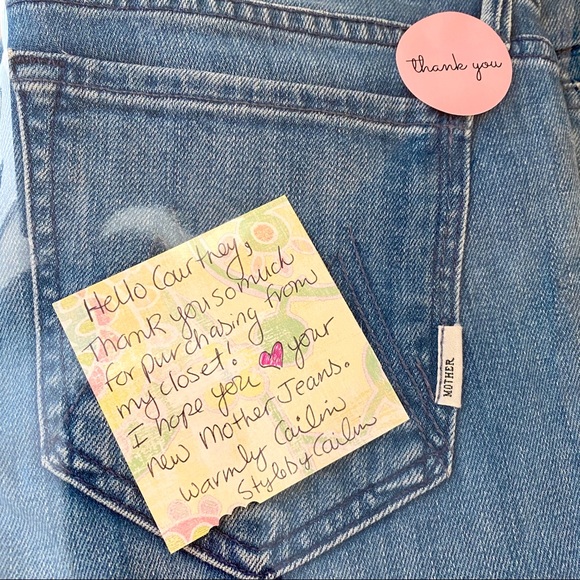 thank you
Hello Courtney,
Thank you so much
for purchasing from
my closet!
I hope you ♥ your
new Mother Jeans.
warmly Cailin
Style by Cailin
MOTHER